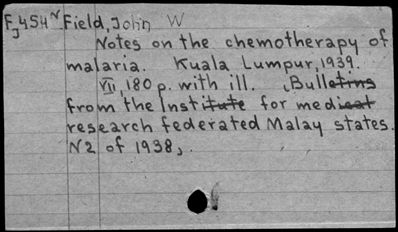 FJ454N Field, John W
Notes on the chemotherapy of
malaria. Kuala Lumpur, 1939.
VII, 180 p. with ill. (Bulletins
from the Institute for medical
research federated Malay states.
N2 of 1938).